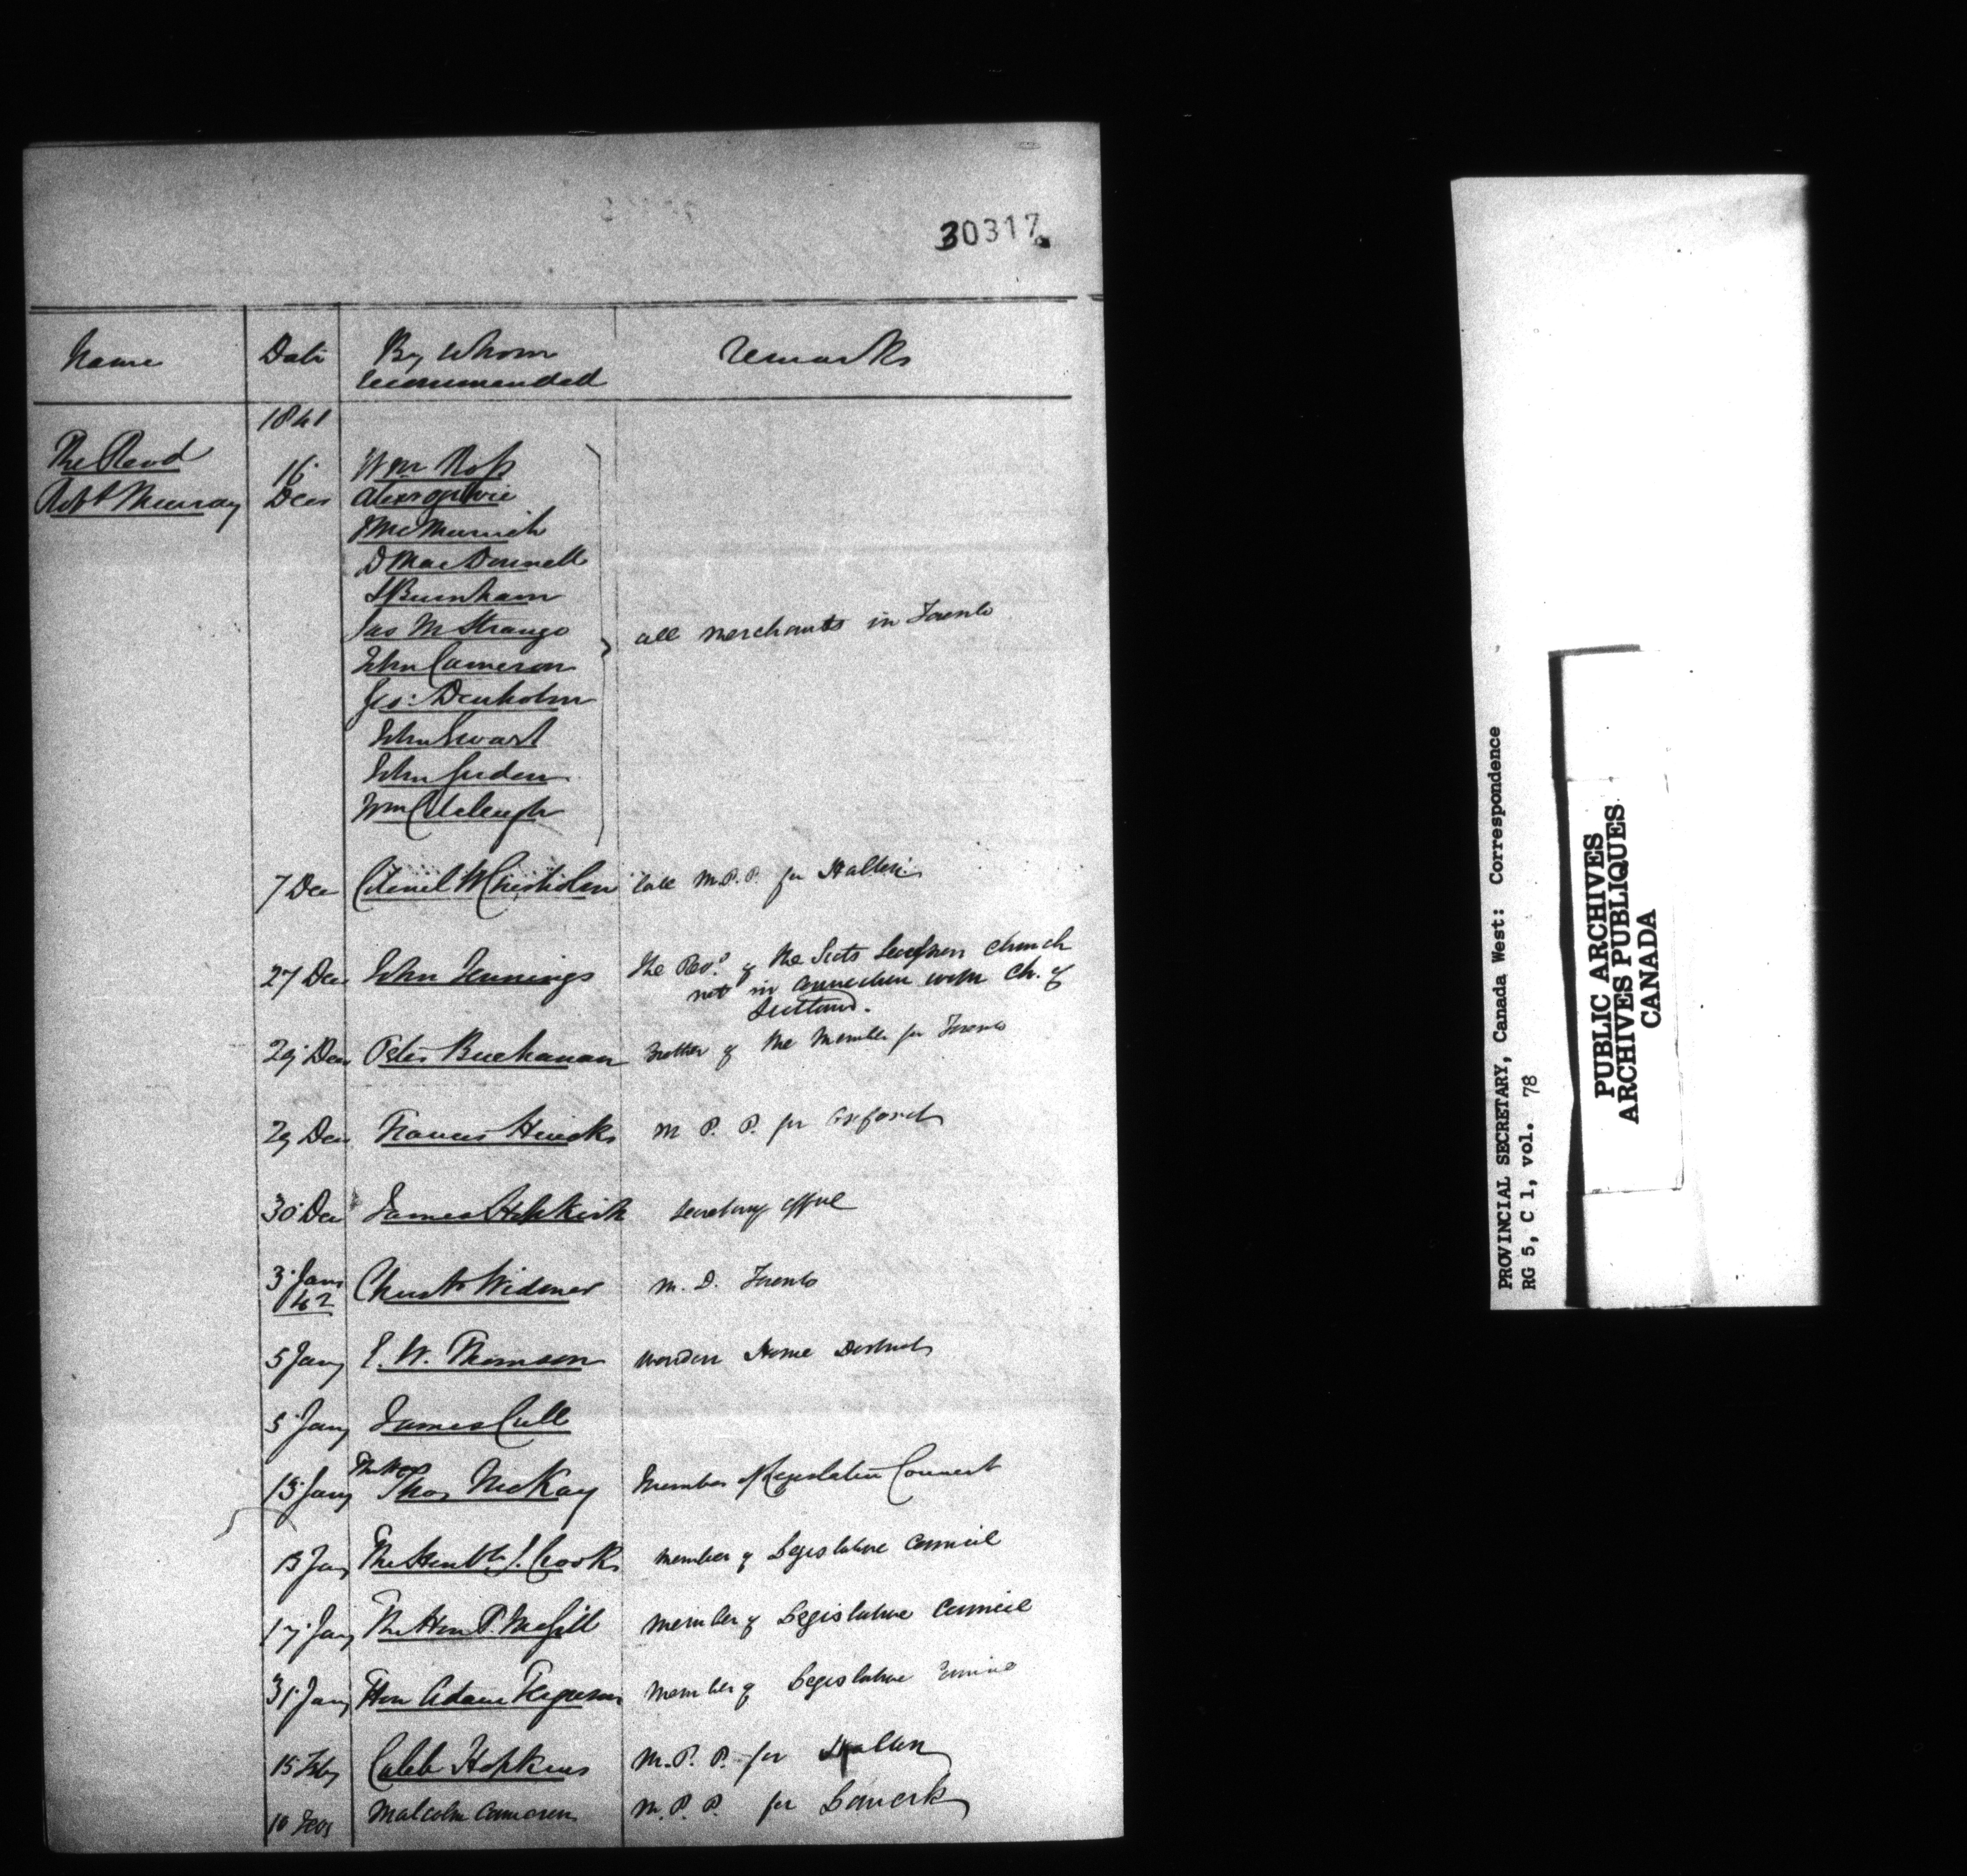 30317
Name Date By Whom recommended Remarks
1841
The Revd 16 Wm Ross
Robt Murray Decr Alexr Ogilvie
J McMurrich
D MacDonnell
Burnham
Jas M Strange
John Cameron all merchants in Toronto
Geo: Denholm
John Ewart
John
Wm
7 Dec Colonel W Chisholm late M.P.P. for Halton
27 Dec John Jennings The Revd of the Scots Secession Church
not in connection with Ch. of
Scotland.
29 Dec Peter Buchanan Brother of the Member for Toronto
29 Dec Francis Hincks M P. P. for Oxford
30 Dec James Hopkirk Secretarys Office
3 Jany 42 Christr Widmer M. D. Toronto
5 Jany E. W. Thomson Warden Home District
5 Jany James Cull
13 Jany The Hon Thos McKay Member of Legislative Council
13 Jany The Honble J. Crooks Member of Legislative Council
17 Jany The Hon P. McGill Member of Legislative Council
31 Jany Hon Adam Ferguson Member of Legislative Council
15 Feby Caleb Hopkins M.P.P. for Halton
10 Feby Malcolm Cameron M.P.P. for Lanark
PROVINCIAL SECRETARY, Canada West: Correspondence
RG 5, C 1, vol. 78
PUBLIC ARCHIVES
ARCHIVES PUBLIQUES
CANADA